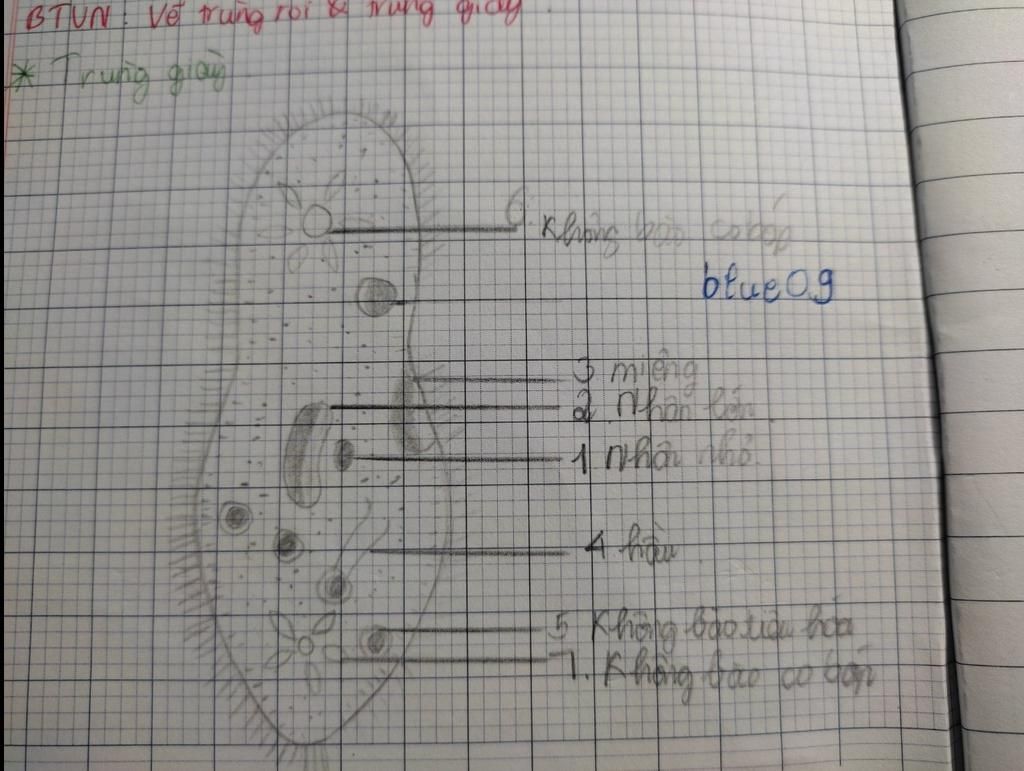 BTVN: Vẽ trùng roi & trùng giày
* Trùng giày
6. Không bào co bóp
blue09
3 miệng
2. Nhân lớn
1 Nhân nhỏ
4 hầu
5 Không bào tiêu hóa
7. Không bào co bóp